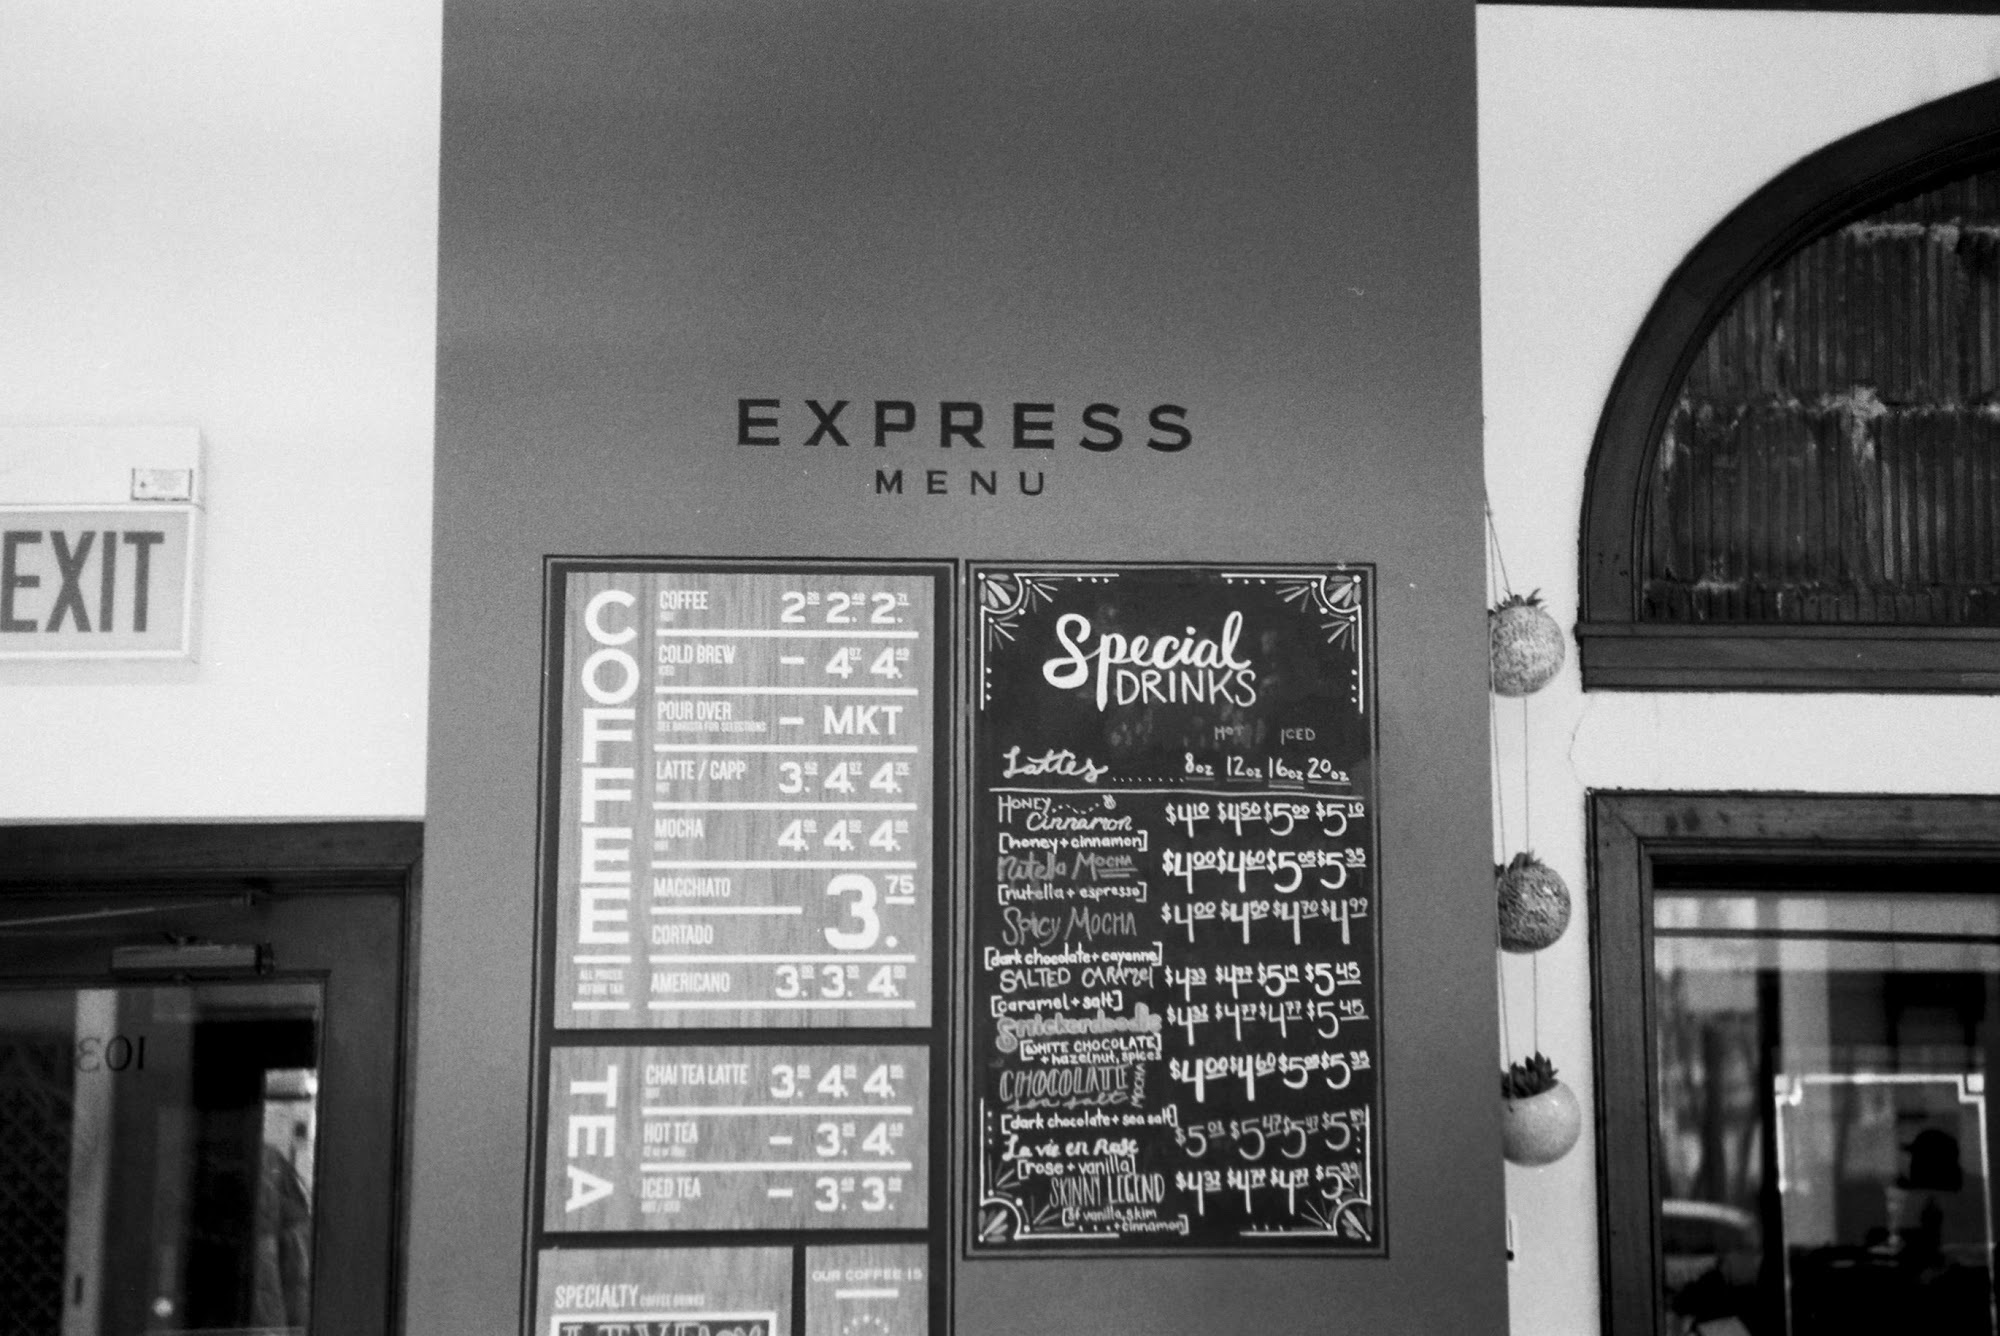 EXPRESS
MENU
EXIT
COFFEE
COFFEE 2. 2. 2.71
COLD BREW – 4. 4.
POUR OVER – MKT
SEE BARISTA FOR SELECTIONS
LATTE / CAPP 3. 4. 4.
MOCHA 4. 4. 4.
MACCHIATO 3.75
CORTADO
AMERICANO 3. 3. 4.
ALL PRICES
BEFORE TAX
TEA
CHAI TEA LATTE 3. 4. 4.
HOT TEA – 3. 4.
ICED TEA – 3. 3.
SPECIALTY COFFEE DRINKS
OUR COFFEE IS
Special
DRINKS
HOT ICED
Lattes........ 8oz 12oz 16oz 20oz
HONEY
Cinnamon $4.10 $4.50 $5.00 $5.10
[honey + cinnamon]
Nutella MOCHA $4.00 $4.60 $5.05 $5.35
[nutella + espresso]
Spicy MOCHA $4.00 $4.50 $4.70 $4.99
[dark chocolate + cayenne]
SALTED CARAMEL $4.33 $4.77 $5.19 $5.45
[caramel + salt]
Snickerdoodle $4.32 $4.77 $4.77 $5.45
[WHITE CHOCOLATE]
+ hazelnut, spices
CHOCOLATE $4.00 $4.60 $5.05 $5.35
sea salt MOCHA
[dark chocolate + sea salt]
La vie en Rose $5.03 $5.47 $5.47 $5.
[rose + vanilla]
SKINNY LEGEND $4.32 $4.77 $4.77 $5.39
[sf vanilla, skim
+ cinnamon]
103